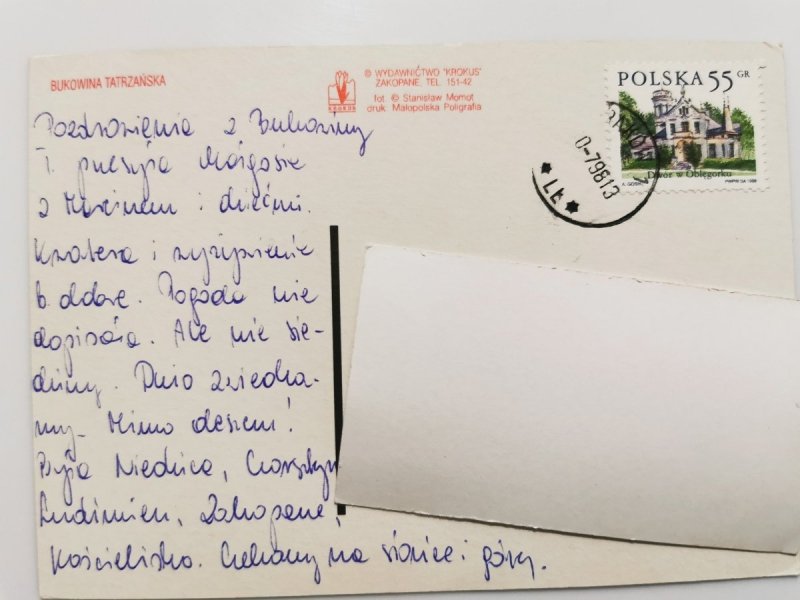 BUKOWINA TATRZAŃSKA
© WYDAWNICTWO "KROKUS"
ZAKOPANE, TEL. 151-42
KROKUS
fot. © Stanisław Momot
druk: Małopolska Poligrafia
POLSKA 55 GR
Dwór w Oblęgorku
PWPW SA 1998
Pozdrowienia z Bukowiny
T. przesyła Małgosia
z Marcinem i dziećmi.
Kwatera i wyżywienie
b. dobre. Pogoda nie
dopisała. Ale nie sie-
dzimy. Dużo zwiedza-
my. Mimo deszczu!
Była Niedzica, Czorsztyn
Ludźmierz, Zakopane,
Kościelisko. Czekamy na słońce i góry.